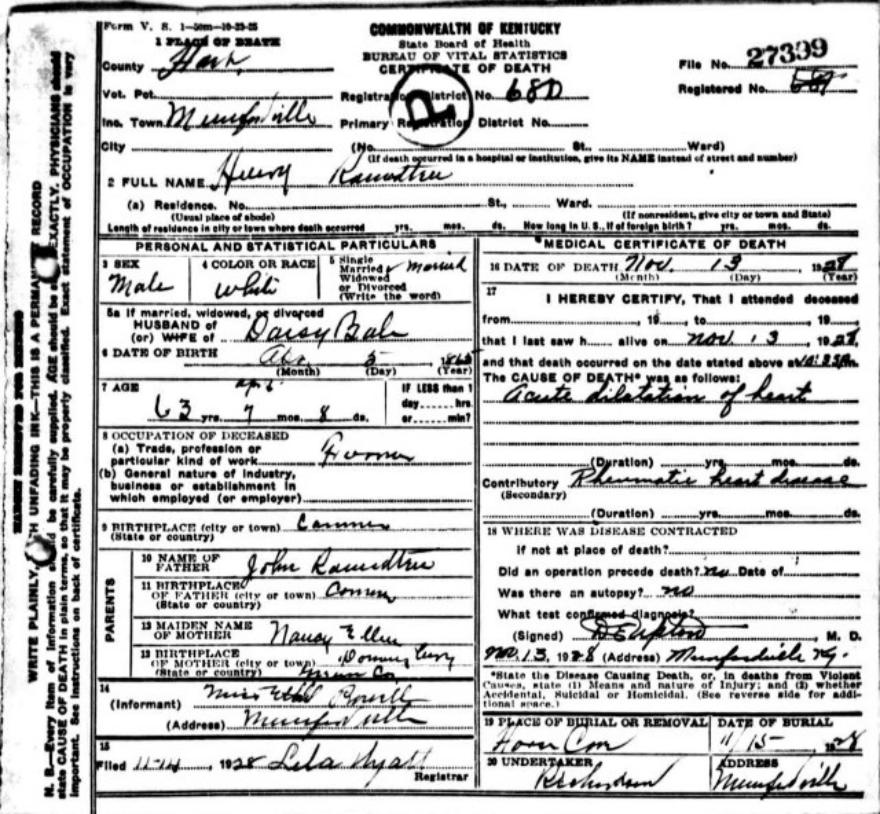 Form V. S. 1—50m—10-23-25
COMMONWEALTH OF KENTUCKY
State Board of Health
BUREAU OF VITAL STATISTICS
CERTIFICATE OF DEATH
File No. 27399
Registered No.
1 PLACE OF DEATH
County Hart
Vot. Pct.
Registration District No. 680
Inc. Town Munfordville
Primary Registration District No.
City (No. St., Ward)
(If death occurred in a hospital or institution, give its NAME instead of street and number)
P
2 FULL NAME Henry Roundtree
(a) Residence. No. St., Ward.
(Usual place of abode) (If nonresident, give city or town and State)
Length of residence in city or town where death occurred yrs. mos. ds. How long in U. S., if of foreign birth? yrs. mos. ds.
PERSONAL AND STATISTICAL PARTICULARS
3 SEX
Male
4 COLOR OR RACE
White
5 Single
Married
Widowed
or Divorced
(Write the word)
Married
5a If married, widowed, or divorced
HUSBAND of
(or) WIFE of Daisy Bale
6 DATE OF BIRTH 5
(Month) (Day) (Year)
7 AGE
63 yrs. 7 mos. 8 ds.
IF LESS than 1
day hrs.
or min?
8 OCCUPATION OF DECEASED
(a) Trade, profession or
particular kind of work Farmer
(b) General nature of industry,
business or establishment in
which employed (or employer)
9 BIRTHPLACE (city or town) Canmer
(State or country)
PARENTS
10 NAME OF
FATHER John Roundtree
11 BIRTHPLACE
OF FATHER (city or town)
(State or country)
12 MAIDEN NAME
OF MOTHER Nancy Ellen
13 BIRTHPLACE
OF MOTHER (city or town)
(State or country)
14
(Informant) Miss
(Address) Munfordville
15
Filed 11-14, 1928 Lela Wyatt
Registrar
MEDICAL CERTIFICATE OF DEATH
16 DATE OF DEATH Nov. 13, 1928
(Month) (Day) (Year)
17
I HEREBY CERTIFY, That I attended deceased
from , 19 , to , 19
that I last saw h alive on Nov. 13, 1928,
and that death occurred on the date stated above at
The CAUSE OF DEATH* was as follows:
Acute dilatation of heart
(Duration) yrs. mos. ds.
Contributory Rheumatic heart disease
(Secondary)
(Duration) yrs. mos. ds.
18 WHERE WAS DISEASE CONTRACTED
if not at place of death?
Did an operation precede death? No Date of
Was there an autopsy? No
What test confirmed diagnosis?
(Signed) Upton, M. D.
Nov. 13, 1928 (Address) Munfordville Ky.
*State the Disease Causing Death, or, in deaths from Violent
Causes, state (1) Means and nature of Injury; and (2) whether
Accidental, Suicidal or Homicidal. (See reverse side for addi-
tional space.)
19 PLACE OF BURIAL OR REMOVAL
DATE OF BURIAL
11/15 1928
20 UNDERTAKER
Richardson
ADDRESS
Munfordville
MARGIN RESERVED FOR BINDING
WRITE PLAINLY, WITH UNFADING INK—THIS IS A PERMANENT RECORD
N. B.—Every item of information should be carefully supplied. AGE should be stated EXACTLY. PHYSICIANS should
state CAUSE OF DEATH in plain terms, so that it may be properly classified. Exact statement of OCCUPATION is very
important. See instructions on back of certificate.